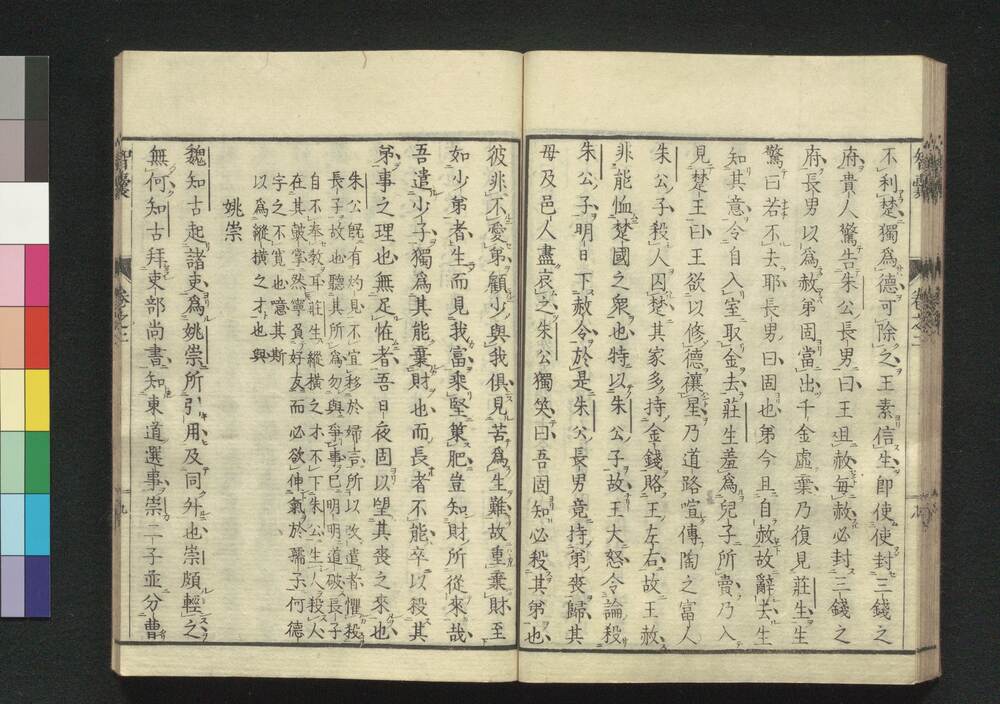 不利楚獨為德可除之王素信生即使使封三錢之
府貴人驚告朱公長男曰王且赦每赦必封三錢之
府長男以為赦弟固當出千金虛棄乃復見莊生生
驚曰若不去耶長男曰固也弟今且自赦故辭去生
知其意令自入室取金去莊生羞為兒子所賣乃入
見楚王曰王欲以修德禳星乃道路喧傳陶之富人
朱公子殺人囚楚其家多持金錢賂王左右故王赦
非能恤楚國之衆也特以朱公子故王大怒令論殺
朱公子明日下赦令於是朱公長男竟持弟喪歸其
母及邑人盡哀之朱公獨笑曰吾固知必殺其弟也
彼非不愛弟顧少與我俱見苦為生難故重棄財至
如少弟者生而見我富乘堅策肥豈知財所從來哉
吾遣少子獨為其能棄財也而長者不能卒以殺其
弟事之理也無足怪者吾日夜固以望其喪之來也
朱公既有灼見不宜移於婦言所以改遣者懼殺
長子故也聽其所為勿與爭事已明明道破長子
自不奉教耳莊生縱橫之才不下朱公生人殺人
在其掌然寧負好友而必欲伸氣於孺子何德
字之不寬也噫其斯
以為縱橫之才也與
姚崇
魏知古起諸吏為姚崇所引用及同升也崇頗輕之
無何知古拜吏部尚書知東道選事崇二子並分曹
智囊
卷之二
九
智囊
卷之二